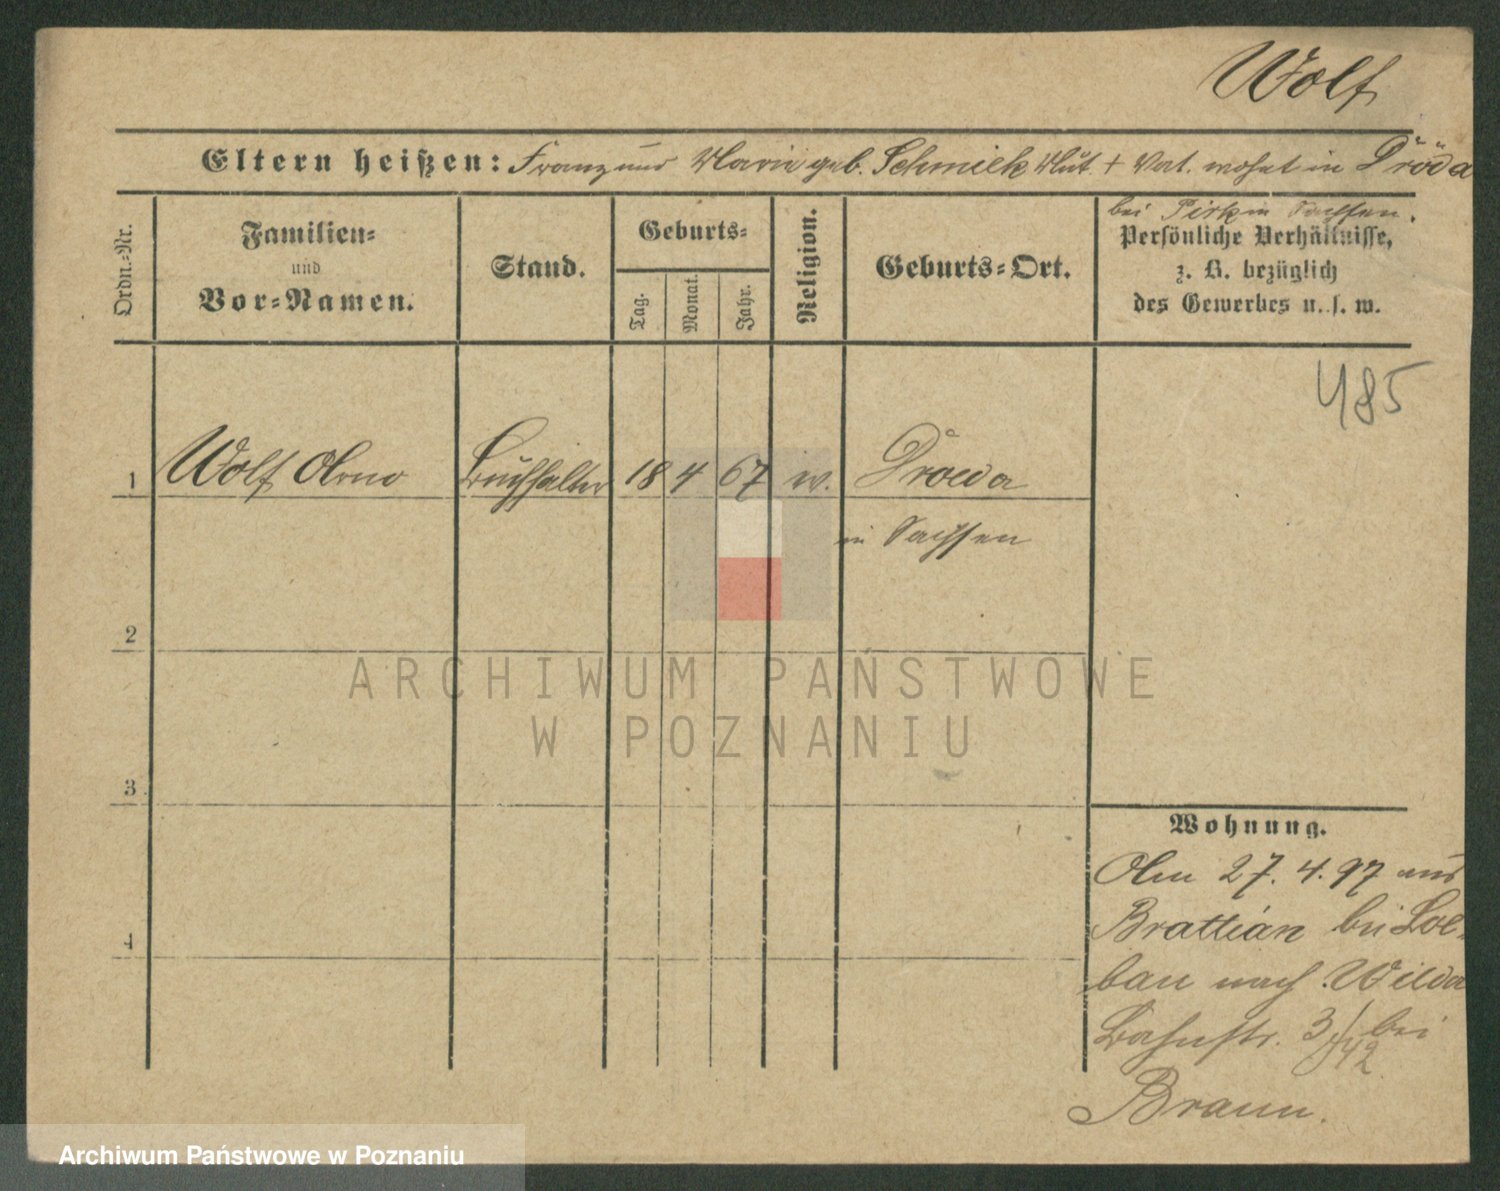 Wolf
Eltern heißen: Franz und Marie geb. Schmiek Mut. + Vat. wohnt in Dröda
bei Pirk in Sachsen.
Ordn.-Nr.
Familien-
und
Vor-Namen.
Stand.
Geburts-
Tag.
Monat.
Jahr.
Religion.
Geburts-Ort.
Persönliche Verhältnisse,
z. B. bezüglich
des Gewerbes u. s. w.
485
1 Wolf Arno Buchhalter 18 4 67 ev. Droeda
in Sachsen
2
3
4
Wohnung.
Am 27. 4. 97 aus
Brattian bei Loe-
bau nach Wilda
Bahnstr. 3/ bei
42
Braun.
ARCHIWUM PAŃSTWOWE
W POZNANIU
Archiwum Państwowe w Poznaniu